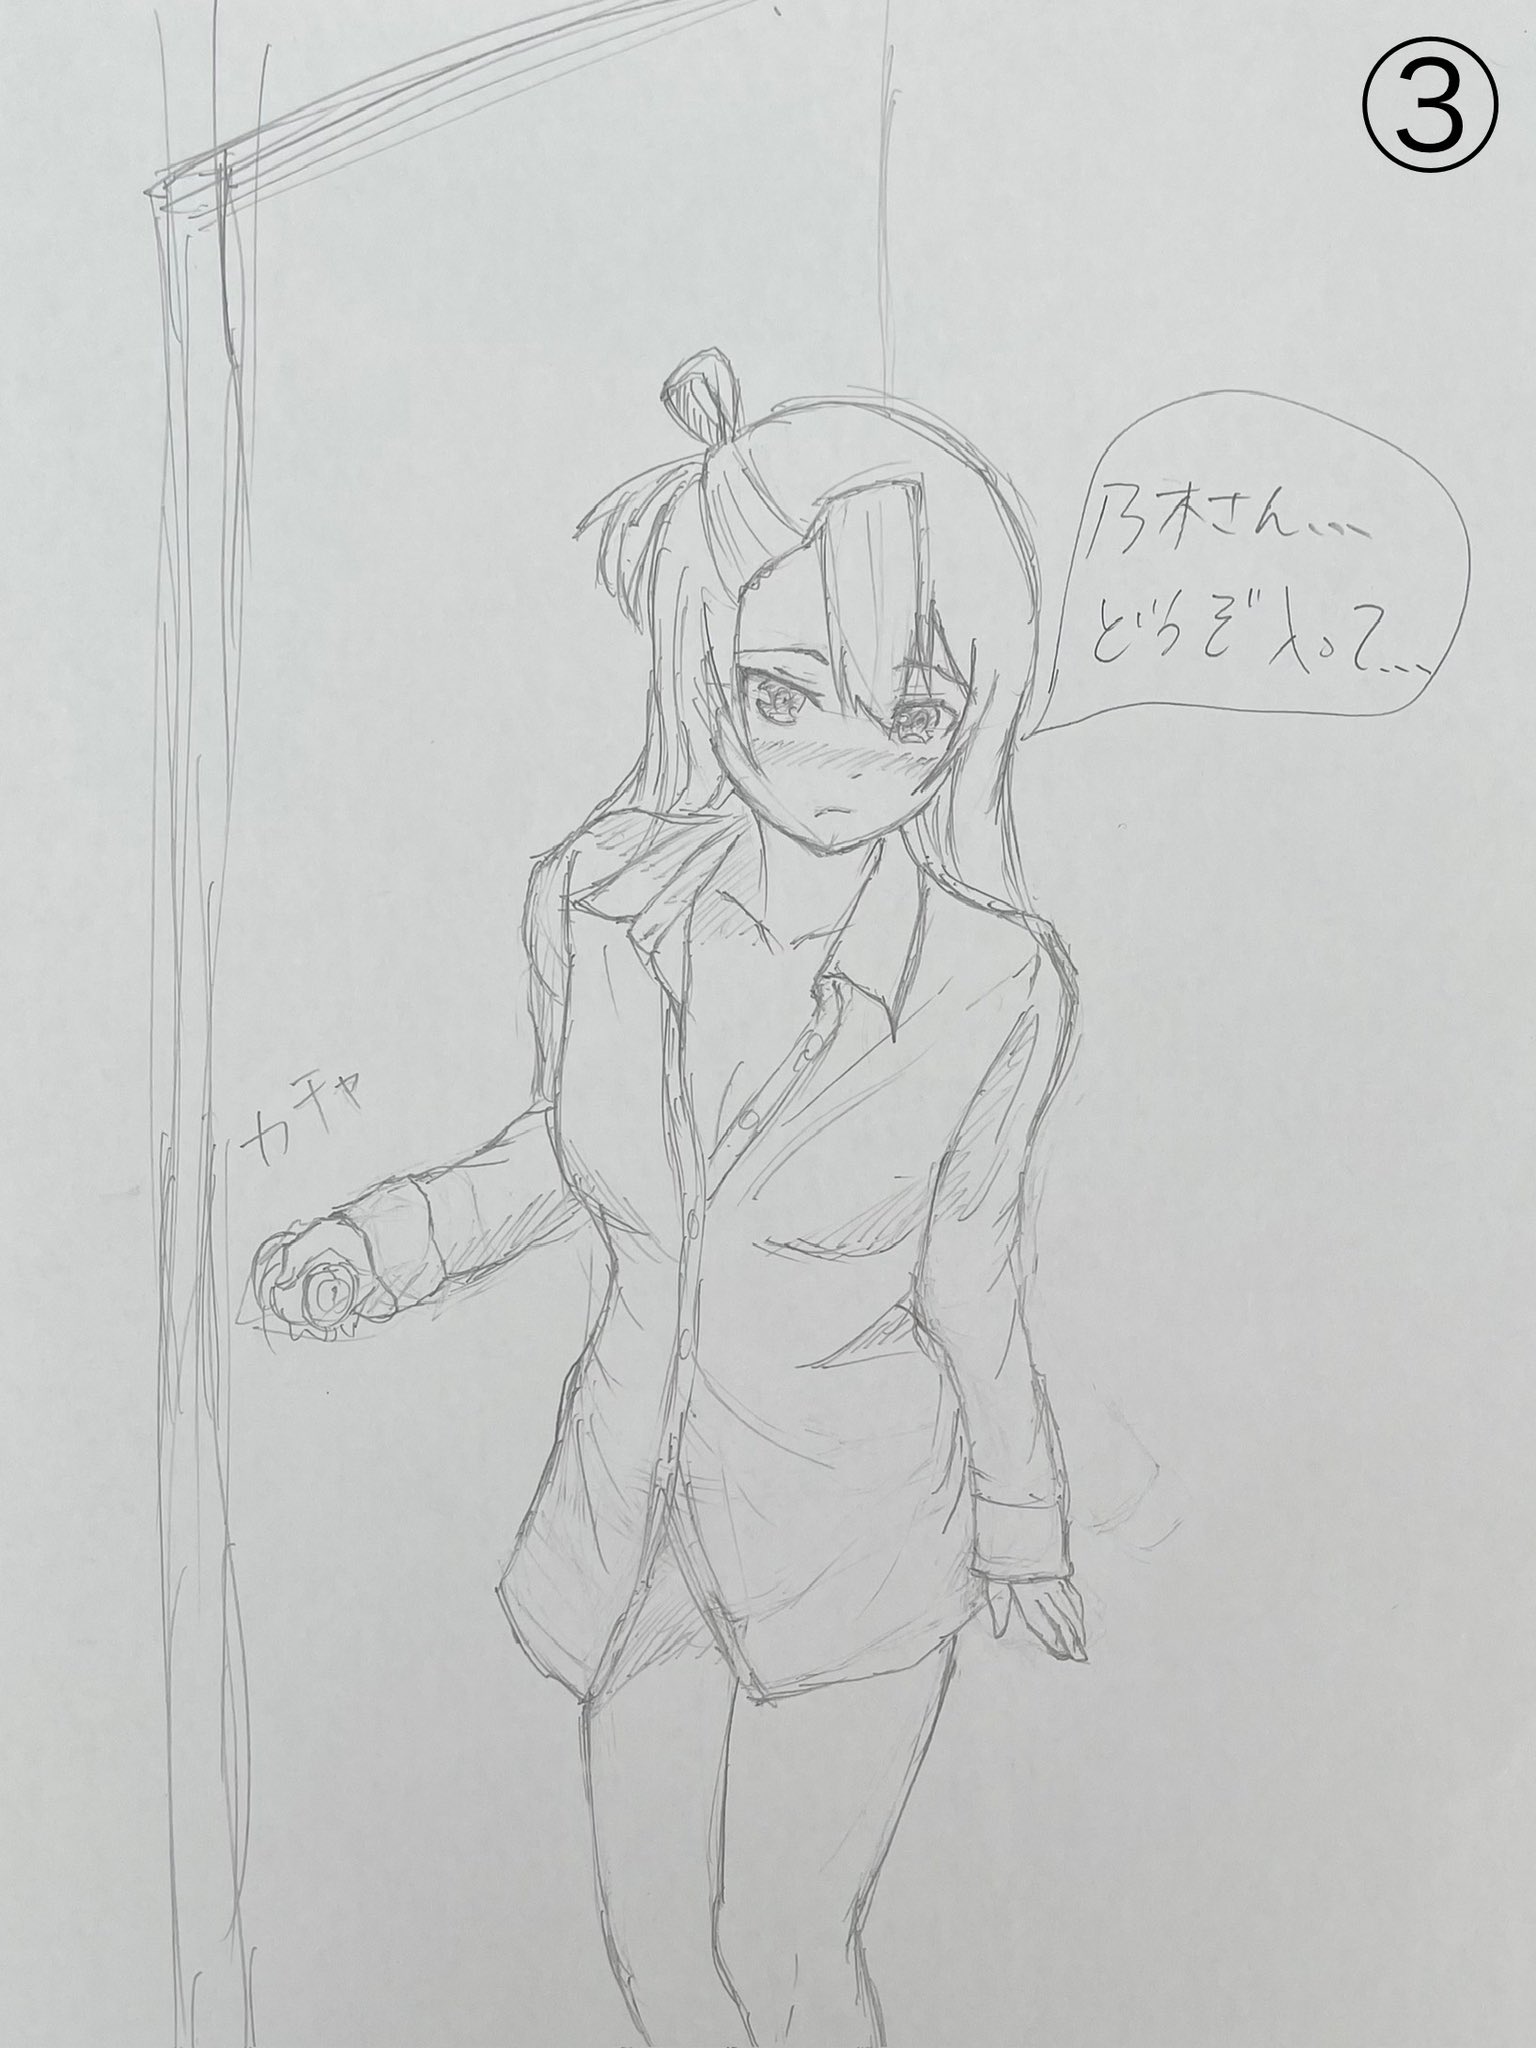 ③
乃木さん...
どうぞ入って...
カチャ